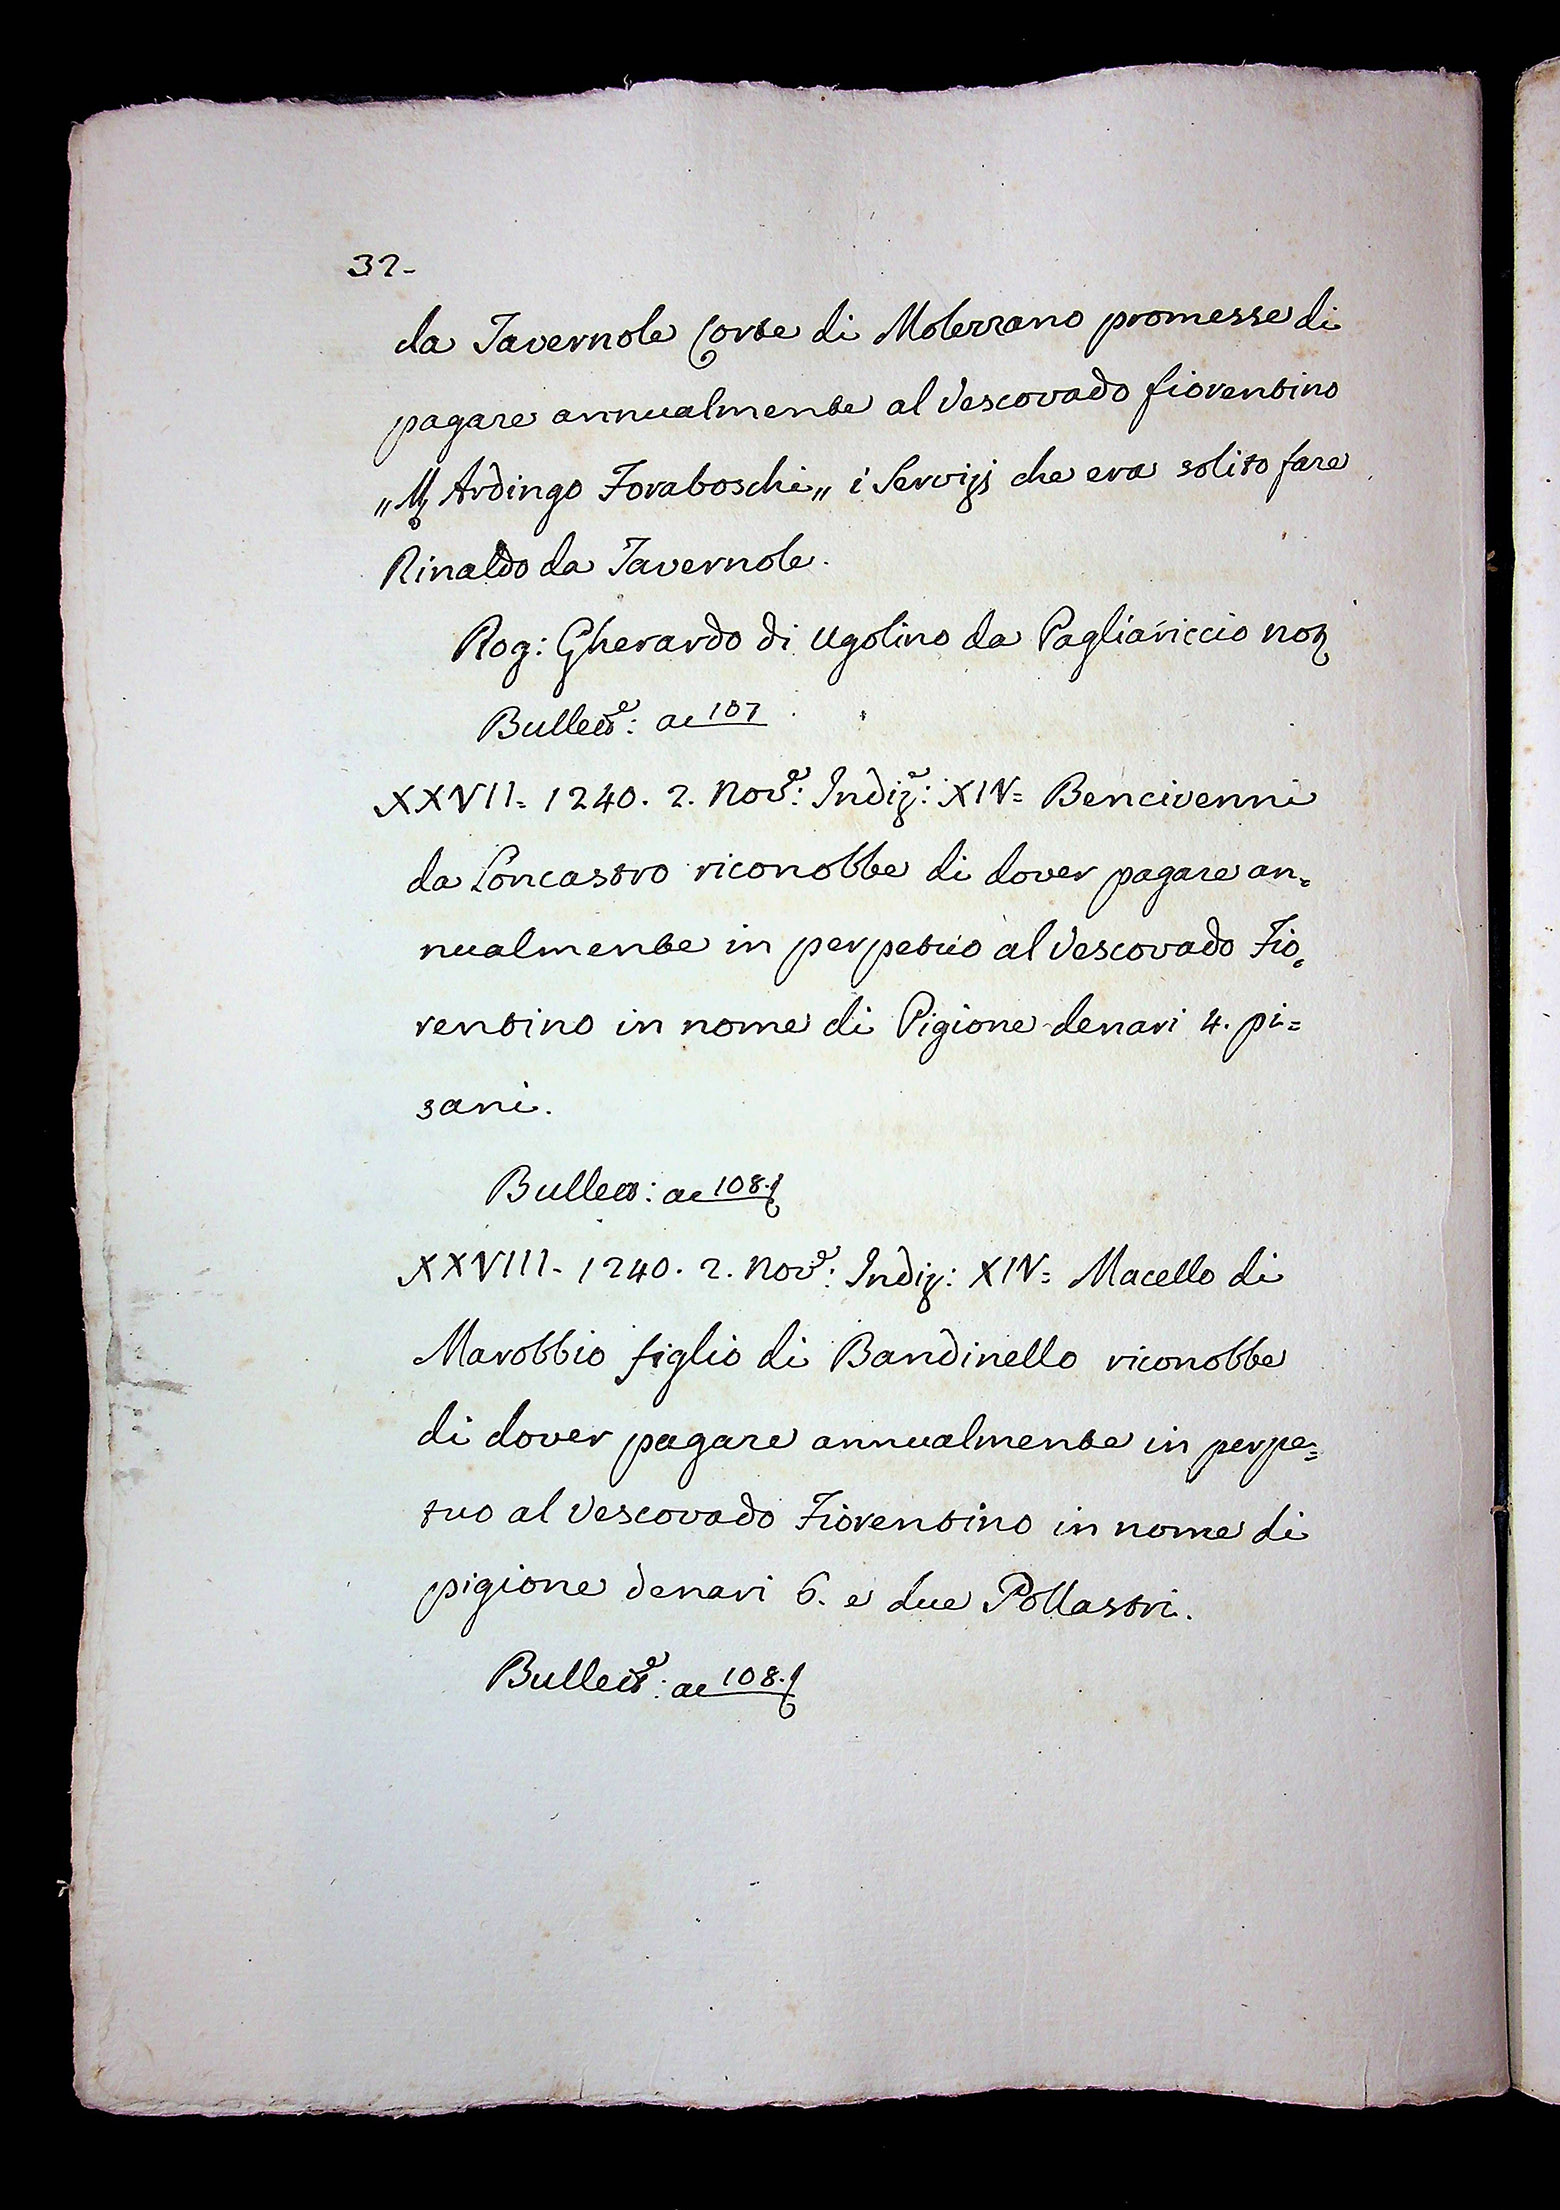 32-
da Tavernole Corte di Molezzano promesse di
pagare annualmente al Vescovado fiorentino
„M Ardingo Foraboschi„ i Servizj che era solito fare
Rinaldo da Tavernole.
Rog: Gherardo di Ugolino da Pagliariccio no
Bullett.e: ac 107
XXVII= 1240. 2. Nov.e: Indiz.e: XIV= Bencivenni
da Loncastro riconobbe di dover pagare an=
nualmente in perpetuo al Vescovado Fio=
rentino in nome di Pigione denari 4. pi=
sani.
Bullett: ac 108.
XXVIII- 1240. 2. Nov.e: Indiz: XIV= Macello di
Marobbio figlio di Bandinello riconobbe
di dover pagare annualmente in perpe=
tuo al Vescovado Fiorentino in nome di
pigione denari 6. e due Pollastri.
Bullett.e: ac 108.